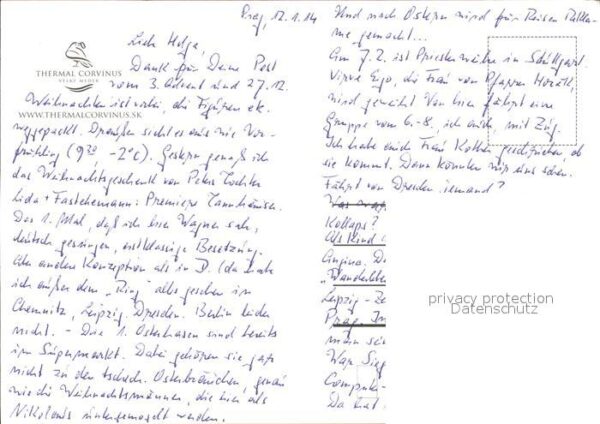 Prag, 12.1.14
Liebe Helga,
Danke für Deine Post
vom 3. Advent und 27.12.
THERMAL CORVINUS
VEĽKÝ MEDER
WWW.THERMALCORVINUS.SK
Weihnachten ist vorbei, die Figuren etc.
weggepackt. Draußen sieht es aus wie Vor-
frühling (9³⁰ -2°C). Gestern genoß ich
das Weihnachtsgeschenk von Peters Tochter
Lida + : Premiere Tannhäuser.
Das 1. Mal, daß ich hier Wagner sah,
deutsch gesungen, erstklassige Besetzung.
Aber andere Konzeption als in D. (da habe
ich außer dem "Ring" alles gesehen in
Chemnitz, Leipzig, Dresden. Berlin leider
nicht. - Die 1. Osterhasen sind bereits
im Supermarkt. Dabei gehören sie gar
nicht zu den tschech. Osterbräuchen, genau
wie die Weihnachtsmänner, die hier als
Nikolaus umgemogelt werden.
Und nach Ostern wird für Reisen Rekla-
me gemacht...
Am 7.2. ist Priesterweihe in Stuttgart.
die Frau von Pfarrer
wird geweiht. Von hier fährt eine
Gruppe vom 6.-8., ich auch, mit Zug.
Ich habe auch Frau geschrieben, ob
sie kommt. Dann könnten wir uns sehen.
Fährt von Dresden jemand?
Was
Kollaps?
Als Kind
Angina. Da
"Wander
Leipzig -
Prag. In
man sei
War Sieg
Computer-
Da hat
privacy protection
Datenschutz